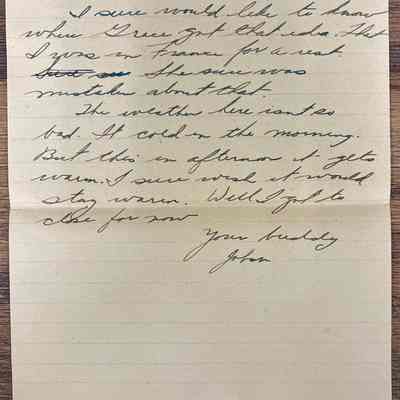 I sure would like to know
where Grace got that idea. That
I was in France for a rest.
She sure was
mistaken about that.
The weather here isnt so
bad. It cold in the morning.
But this in afternoon it gets
warm. I sure wish it would
stay warm. Well I got to
close for now
Your buddy
John